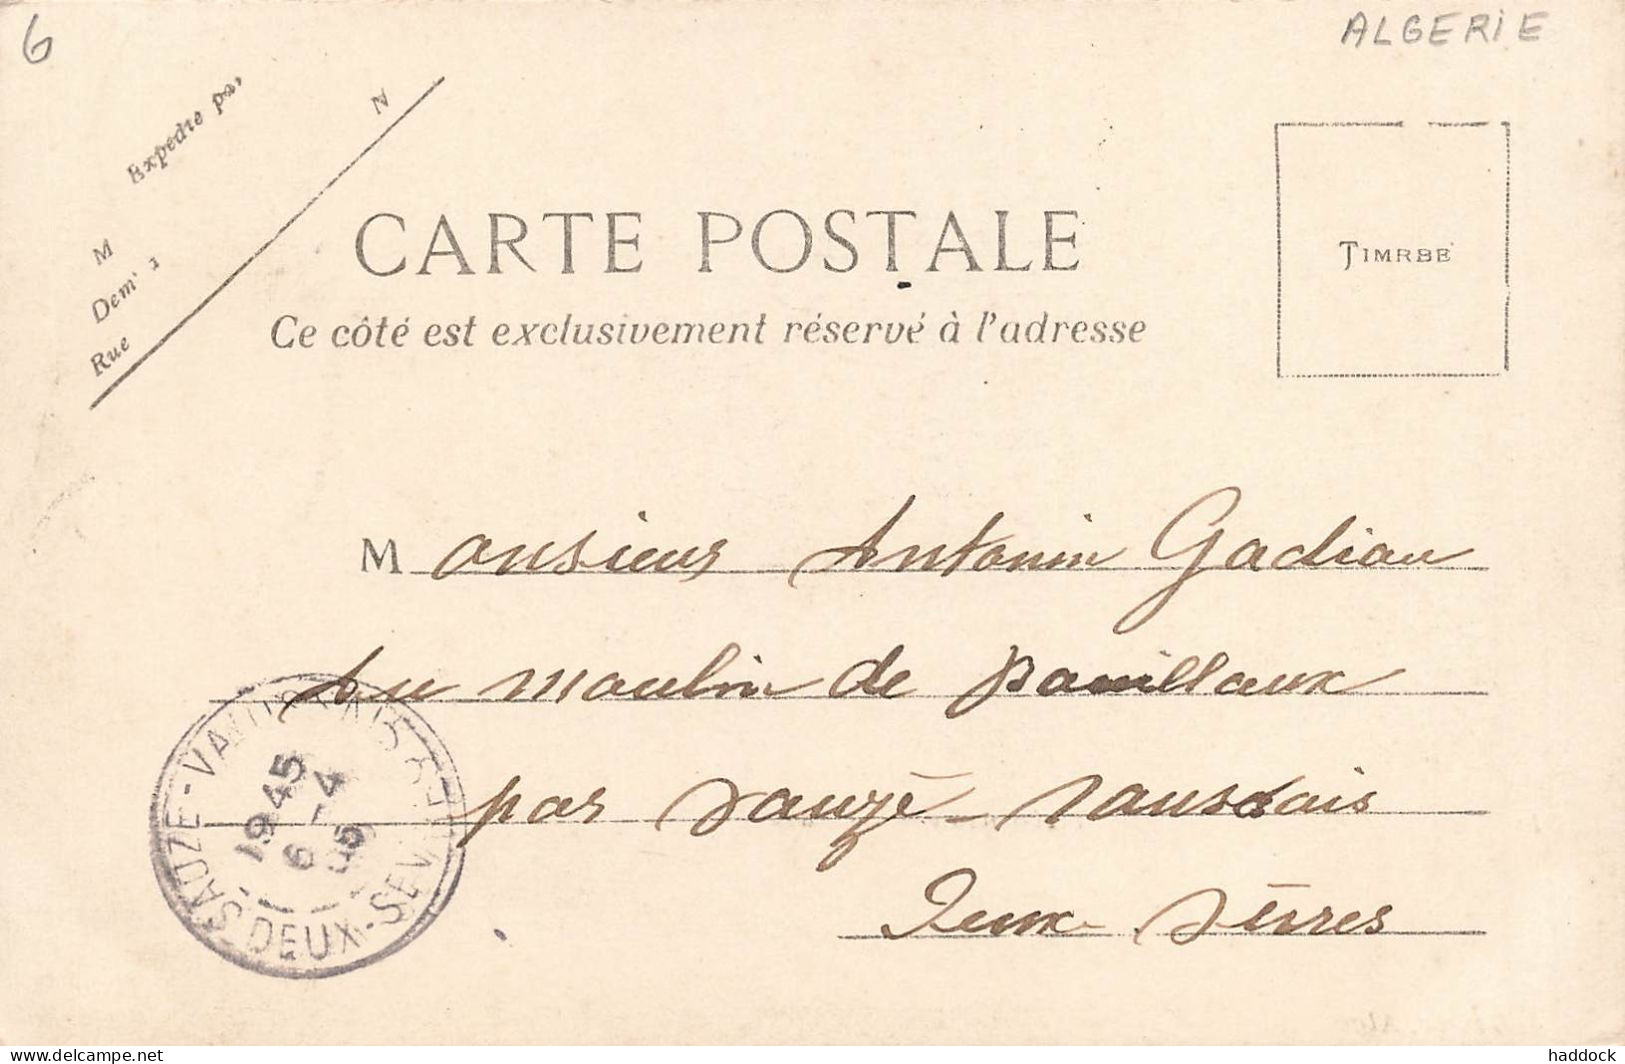 6
ALGERIE
Expédie pa
N
M
Dem
Rue
CARTE POSTALE
Ce côté est exclusivement réservé à l'adresse
TIMRBE
Monsieur Antonin Gadiou
Au moulin de Panillaux
par Sauzé-Vaussais
Deux-Sèvres
SAUZE-VAUSSAIS
19 45
6 -4
05
DEUX-SEVRES
haddock